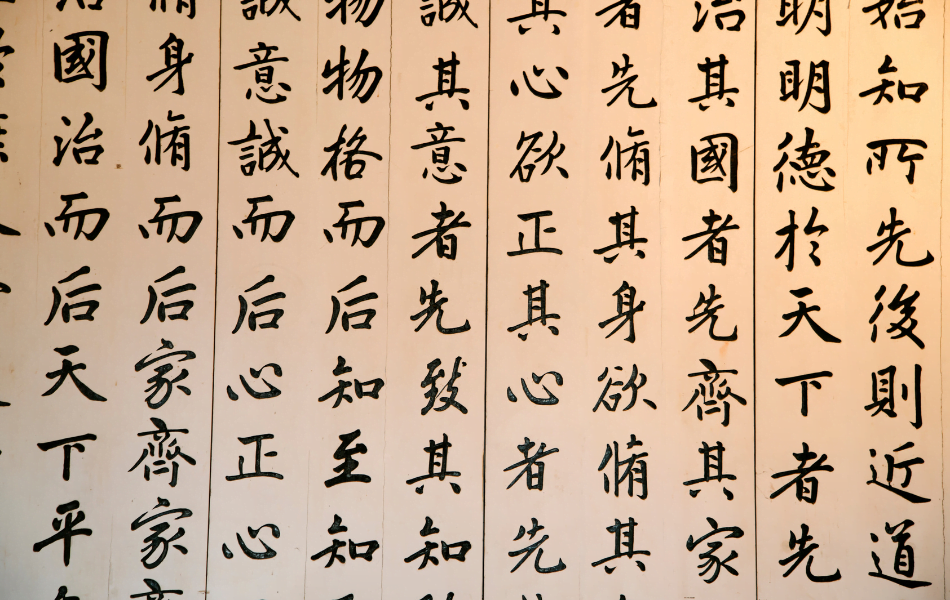 始知所先後則近道
明明德於天下者先
治其國者先齊其家
者先脩其身欲脩其
其心欲正其心者先
誠其意者先致其知
物物格而后知至知
誠意誠而后心正心
脩身脩而后家齊家
治國治而后天下平